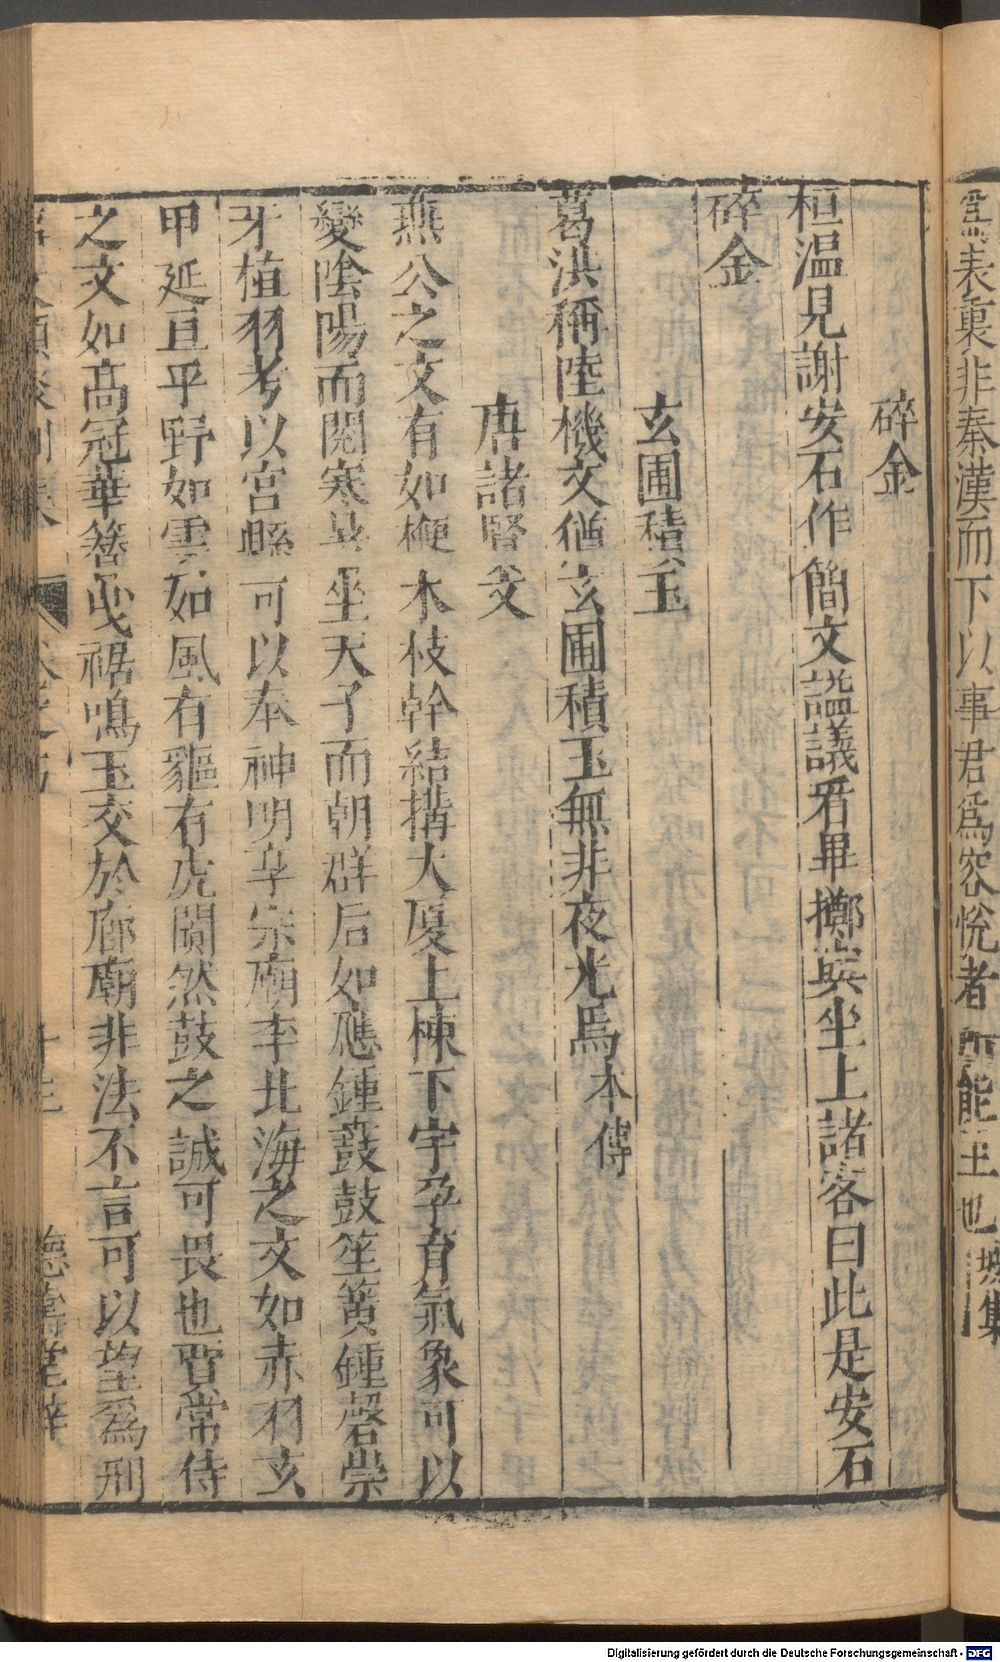 爲表裏非秦漢而下以事君爲容悅者所能王也
坡集
碎金
桓温見謝安石作簡文諡議看畢擲與坐上諸客曰此是安石
碎金
玄圃積玉
葛洪稱陸機文猶玄圃積玉無非夜光焉
本傳
唐諸賢文
燕公之文有如楩木枝幹結搆大厦上棟下宇孕育氣象可以
變陰陽而閱寒暑坐天子而朝群后如應鍾鼖鼓笙簧錞磬崇
牙植羽考以宮縣可以奉神明享宗廟李北海之文如赤羽玄
甲延亘平野如雲如風有貙有虎闐然鼓之誠可畏也賈常侍
之文如高冠華簪曳裾鳴玉交於廊廟非法不言可以望爲刑
十三
德壽堂梓
Digitalisierung gefördert durch die Deutsche Forschungsgemeinschaft - DFG